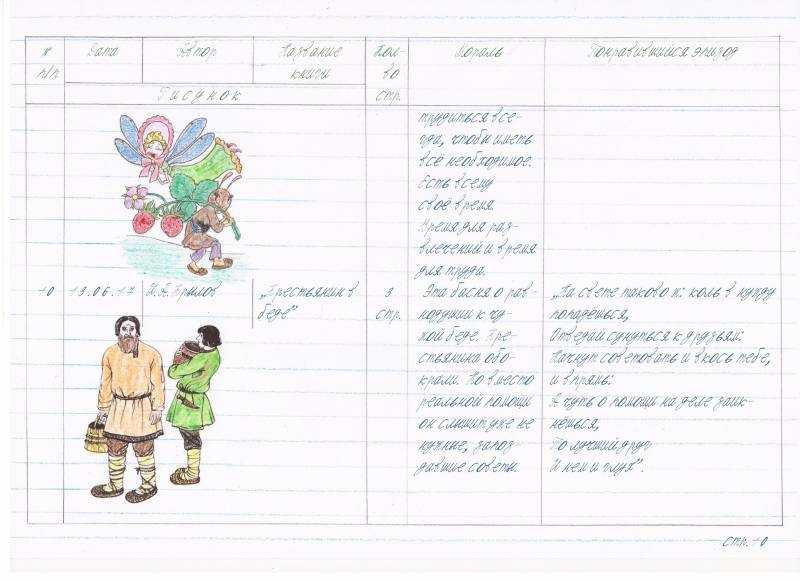 № п/п
Дата
Автор
Название книги
Кол-во стр.
Мораль
Понравившийся эпизод
Рисунок
трудиться все-
гда, чтобы иметь
всё необходимое.
Есть всему
своё время.
Время для раз-
влечений и время
для труда.
10
13.06.17
И.А. Крылов
„Крестьянин в
беде”
3
стр.
Эта басня о рав-
нодушии к чу-
жой беде. Кре-
стьянина обо-
крали. Но вместо
реальной помощи
он слышит уже не
нужные, запоз-
давшие советы.
„На свете таково ж: коль в нужду
попадёшься,
Отведай сунуться к друзьям:
Начнут советовать и вкось тебе,
и впрямь:
А чуть о помощи на деле заик-
нёшься,
То лучший друг
И нем и глух”.
стр. 10